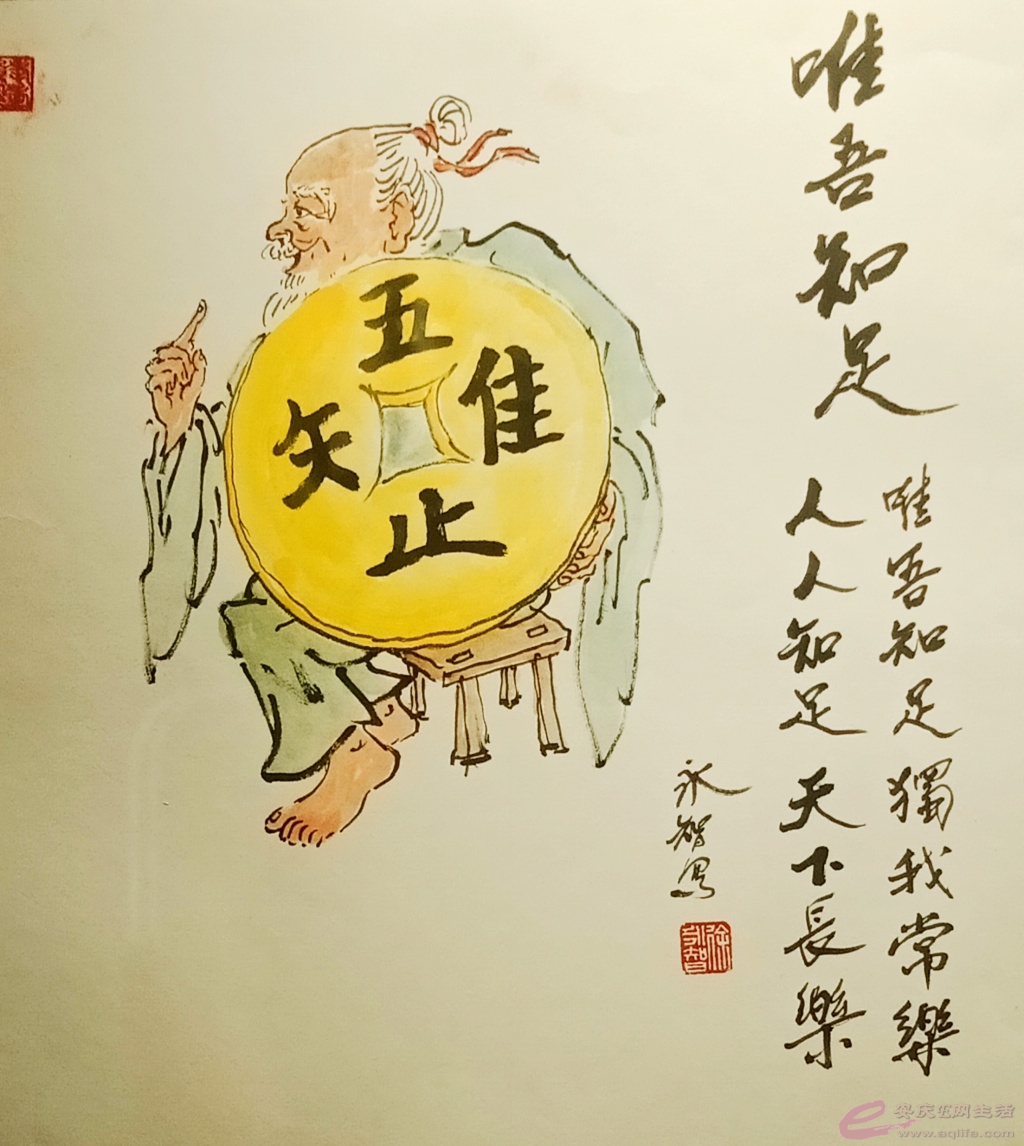 唯吾知足
唯吾知足獨我常樂
人人知足天下長樂
永智寫
徐永智
五
隹
矢
止
安庆E网生活
www.aqlife.com